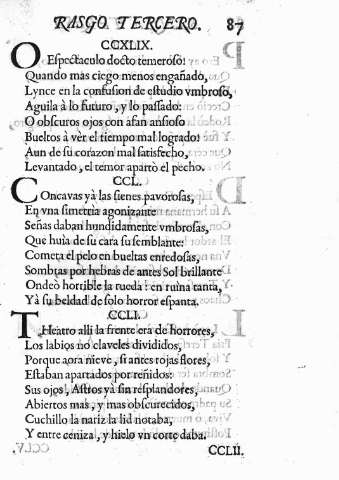 RASGO TERCERO. 87
CCXLIX.
O Espectaculo docto temeroso!
Quando mas ciego menos engañado,
Lynce en la confusion de estudio vmbroso,
Aguila à lo futuro, y lo passado:
O obscuros ojos con afan ansioso
Bueltos à vèr el tiempo mal logrado!
Aun de su corazon mal satisfecho,
Levantado, el temor apartò el pecho.
CCL.
COncavas yà las sienes pavorosas,
En vna simetria agonizante
Señas daban hundidamente vmbrosas,
Que huìa de su cara su semblante:
Cometa el pelo en bueltas enredosas,
Sombras por hebras de antes Sol brillante
Ondeò horrible la rueda: en ruina tanta,
Yà su beldad de solo horror espanta.
CCLI.
THeatro alli la frente era de horrores,
Los labios no claveles divididos,
Porque aora nieve, si antes rojas flores,
Estaban apartados por reñidos:
Sus ojos, Astros yà sin resplandores,
Abiertos mas, y mas obscurecidos,
Cuchillo la nariz la lid notaba,
Y entre ceniza, y hielo vn corte daba.
CCLII.